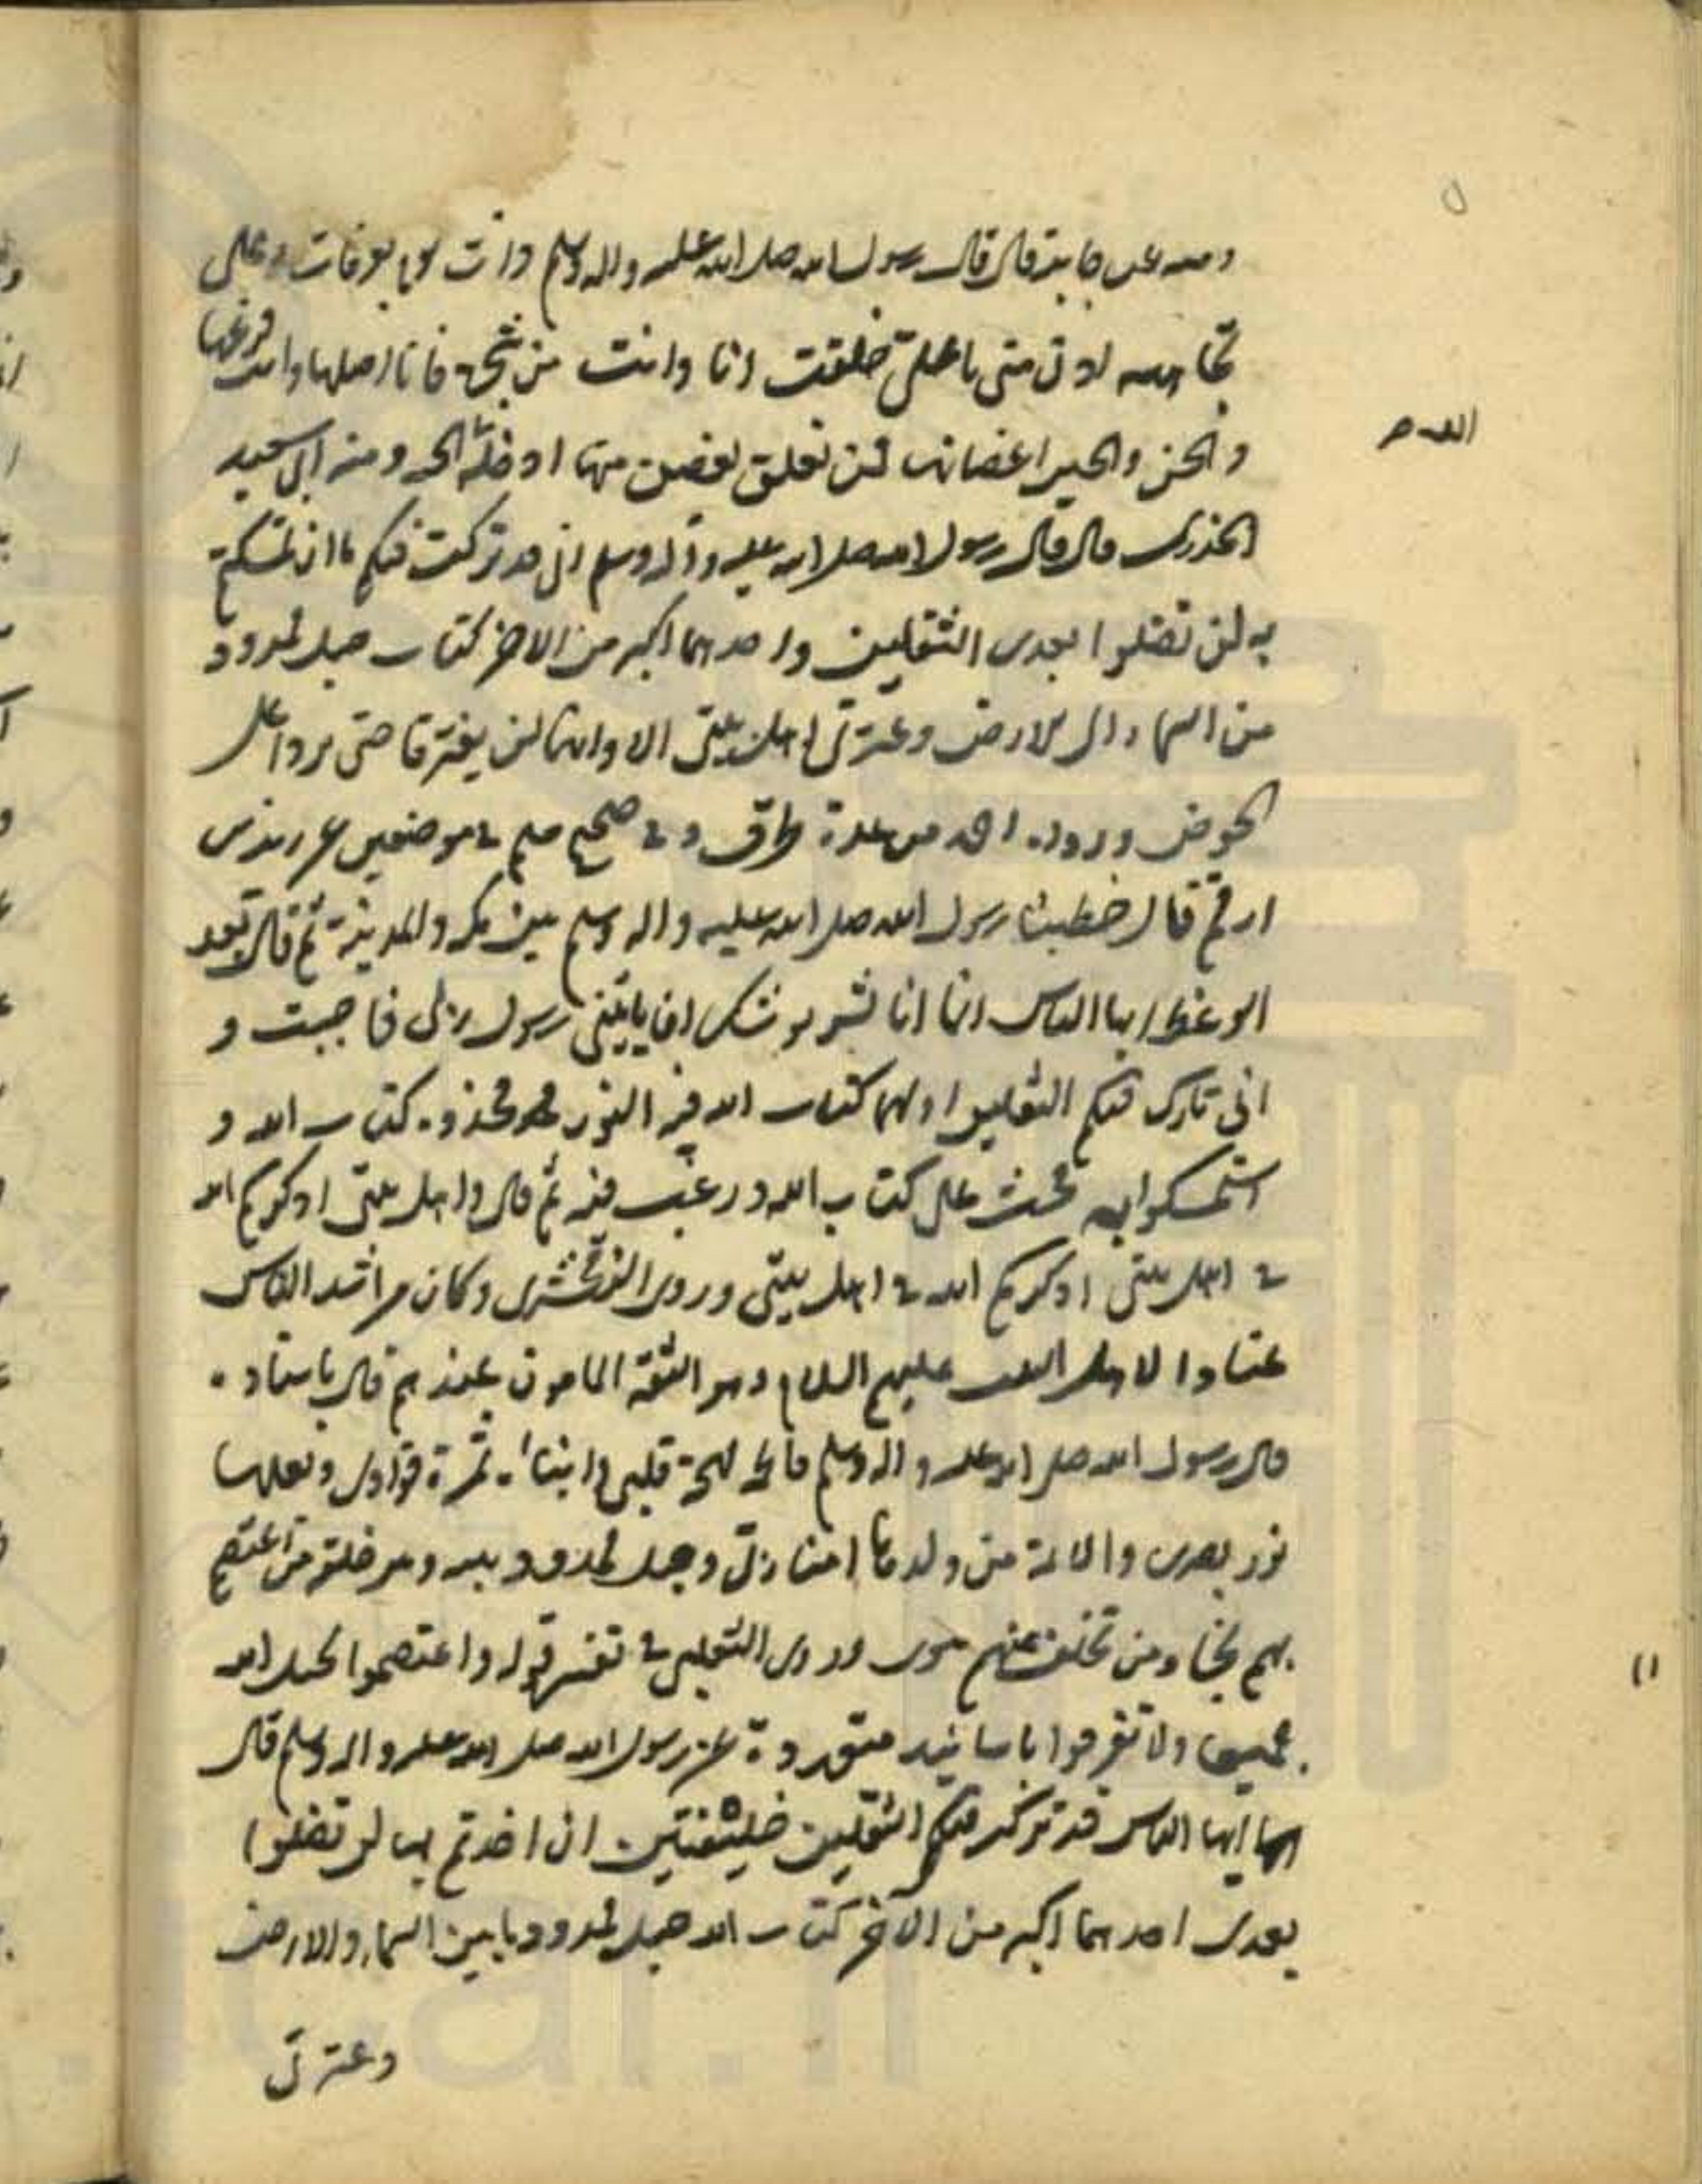 ومنه عن جابر قال قال رسول الله صلى الله عليه واله وسلم ذات يوم بعرفات وعلى
تجاهه ادن منى يا على خلقت انا وانت من شجرة فانا اصلها وانت فرعها
والحسن والحسين اغصانها فمن تعلق بغصن منها ادخله الله الجنة ومنه عن ابى سعيد
الخدرى قال قال رسول الله صلى الله عليه وآله وسلم انى قد تركت فيكم ما ان تمسكتم
به لن تضلوا بعدى الثقلين واحدهما اكبر من الاخر كتاب الله حبل ممدود
من السماء الى الارض وعترتى اهل بيتى الا وانهما لن يفترقا حتى يردا على
الحوض ورواه احمد من عدة طرق وفى صحيح مسلم فى موضعين عن زيد بن
ارقم قال خطبنا رسول الله صلى الله عليه واله وسلم بين مكه والمدينة ثم قال بعد
الوعظ ايها الناس انما انا بشر يوشك ان ياتينى رسول ربى فاجيب و
انى تارك فيكم الثقلين اولهما كتاب الله فيه النور فخذوه كتاب الله و
استمسكوا به فحث على كتاب الله ورغب فيه ثم قال واهل بيتى اذكركم الله
فى اهل بيتى اذكركم الله فى اهل بيتى وروى الزمخشرى وكان من اشد الناس
عنادا لاهل البيت عليهم السلام وهو الثقة المامون عندهم قال باسناده
قال رسول الله صلى الله عليه واله وسلم فاطمة مهجة قلبى وابناها ثمرة فوادى وبعلها
نور بصرى والائمة من ولدها امناء ربى وحبل ممدود بينه وبين خلقه من اعتصم
بهم نجا ومن تخلف عنهم هوى وروى الثعلبى فى تفسير قوله واعتصموا بحبل الله
جميعا ولا تفرقوا باسانيد متعددة عن رسول الله صلى الله عليه واله وسلم قال
ايها الناس قد تركت فيكم الثقلين خليفتين ان اخذتم بهما لن تضلوا
بعدى احدهما اكبر من الآخر كتاب الله حبل ممدود ما بين السماء والارض
وعترتى